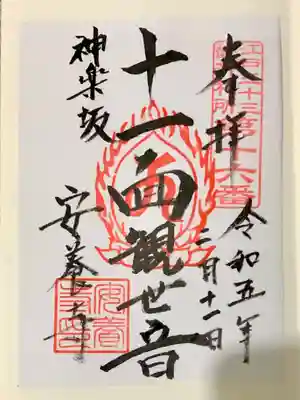 奉拝
江戸三十三
観音札所
第十六番
令和五年
二月十一日
十一面観世音
神楽坂
安養寺